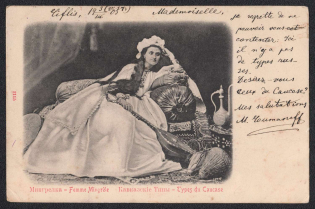 Tiflis, 19
Mademoiselle,
je regrette de ne
pouvoir vous mieux
contenter. Ici
il n'y a pas
de types rus-
ses.
Désirez-vous
ceux du Caucase?
Mes salutations
M.
Мингрелка – Femme Mingrélie Кавказскіе Типы – Types du Caucase